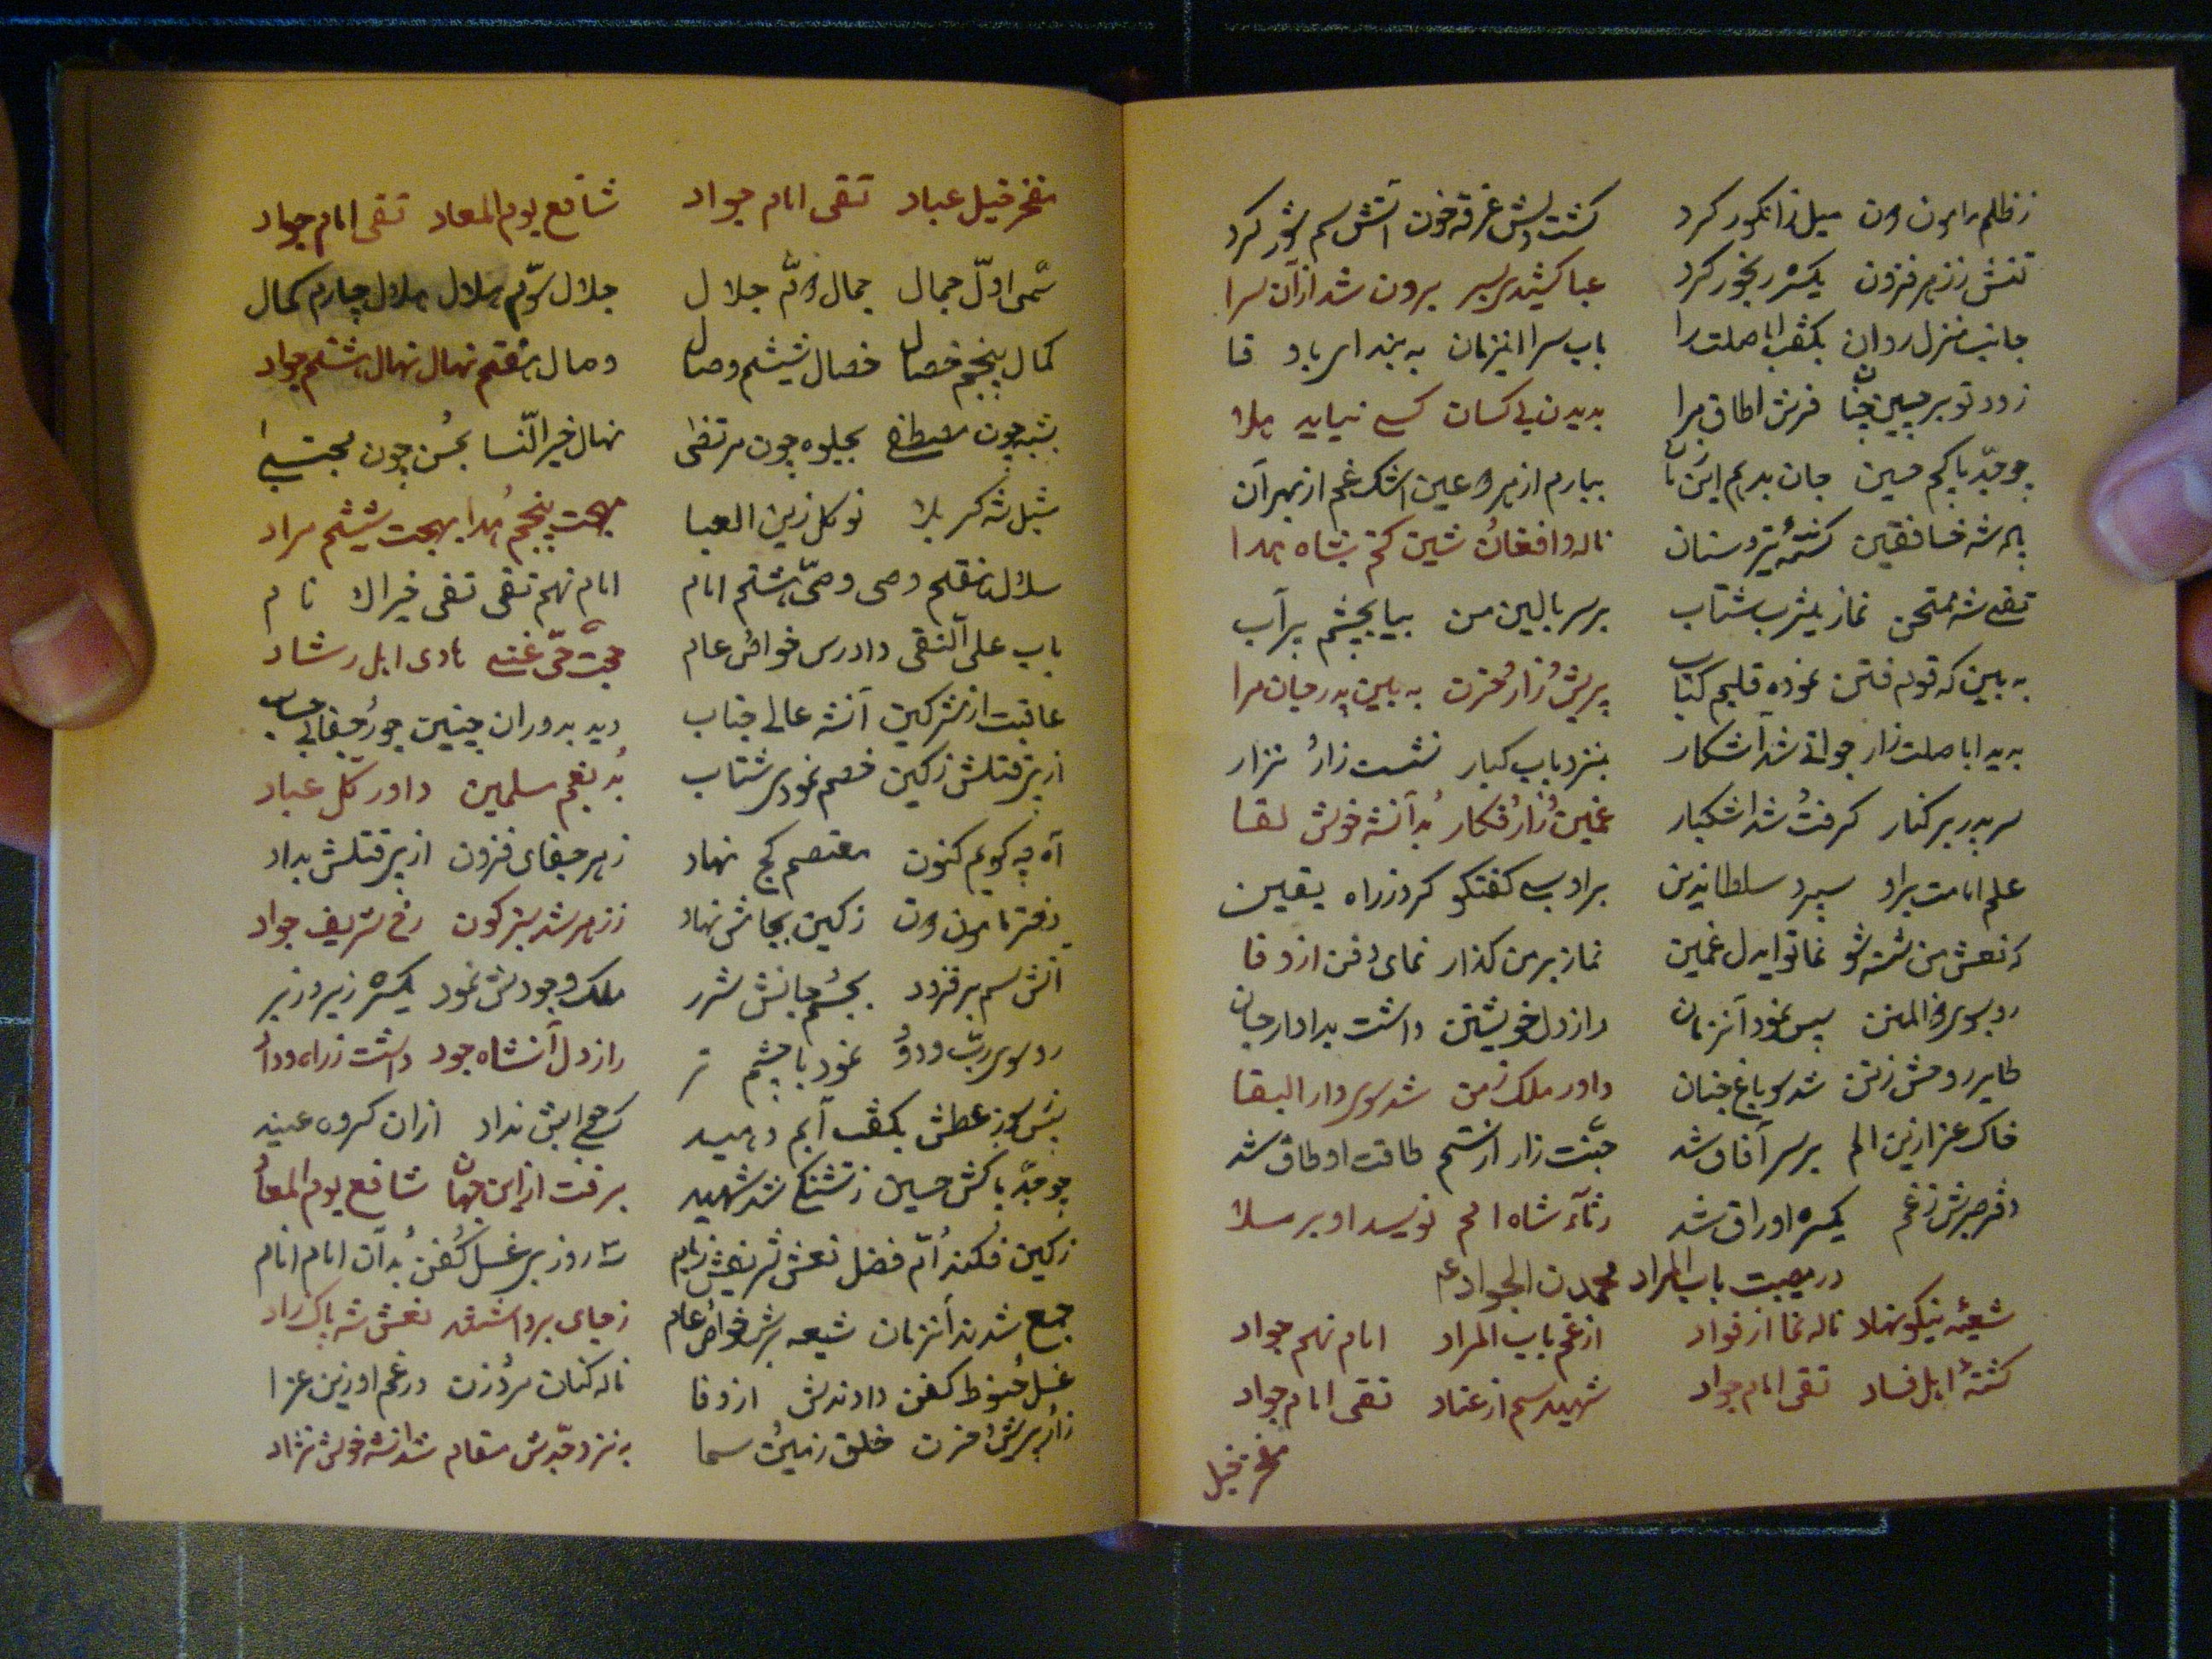 ز ظلم مامون دون میل ز انگور کرد گشت دلش غرقه خون آتش سم شور کرد
تنش ز زهر فزون یکسره رنجور کرد عبا کشید بر سر برون شد از آن سرا
جانب منزل روان بگفت ابا صلت را باب سرا این زمان به بند ای با وفا
زود تو بر چین چنان فرش اطاق مرا بدیدن بی کسان کسی نیاید هلا
چو جد پاکم حسین جان بدهم این زمان ببارم از هر دو عین اشک غم از بهر آن
ناله و افغان شین کن بشاه هدا
تقی شه ممتحن نما ز یثرب شتاب بر سر بالین من بیا بچشم پر آب
به بین که قوم فتن نموده قلبم کباب پریش و زار و حزن به بین پدر جان مرا
به ید ابا صلت زار جوانی شد آشکار بنزد باب کبار نشست زار و نزار
سر پدر بر کنار گرفت و شد اشکبار غمین و زار و فکار بد آنشه خوش لقا
علم امامت براو سپرد سلطان دین براو بسی گفتگو کرد ز راه یقین
ز نعش من شستشو نما تو ای دل غمین نماز بر من گذار نمای دفن از وفا
رو بسوی ذو المنن پس نمود آنزمان راز دل خویشتن داشت بدادار جان
طایر روحش ز تن شد سوی باغ جنان داور ملک زمن شد سوی دار البقا
خاک عزا زین الم بر سر آفاق شد جنت زار از ستم طاقت او طاق شد
دفتر صبرش ز غم یکسره اوراق شد رثآء شاه امم نویسد او بر ملا
در مصیبت باب المراد محمدن الجواد ع
شیعهٔ نیکو نهاد ناله نما از فواد از غم باب المراد امام نهم جواد
کشتهٔ اهل فساد تقی امام جواد شهید سم از عناد تقی امام جواد
مفخر خیل
مفخر خیل عباد تقی امام جواد شافع یوم المعاد تقی امام جواد
سمی اول جمال جمال دوم جلال جلال سوم هلال هلال چارم کمال
کمال پنجم خصال خصال ششم وصال وصال هفتم نهال نهال هشتم جواد
بشبه چون مصطفی بجلوه چون مرتضی نهال خیر النسا بحسن چون مجتبی
شبل شه کربلا نو گل زین العبا بهجت پنجم هدا بهجت ششم مراد
سلال هفتم وصی وصی هشتم امام امام نهم تقی تقی خیر الانام
باب علی النقی دادرس خواص و عام حجت حی غنی هادی اهل رشاد
عاقبت از مشرکین آنشه عالی جناب دید بدوران چنین جور و جفا بی حساب
از بر قتلش ز کین خصم نمودی شتاب بد بغم مسلمین داور کل عباد
آه چه گویم کنون معتصم کج نهاد زهر جفای فزون از بر قتلش بداد
دختر مامون دون ز کین بجانش نهاد ز زهر شد سبز گون رخ شریف جواد
آتش سم بر فزود بجسم و جانش شرر ملک وجودش نمود یکسره زیر و زبر
رو سوی رب ودود نمود با چشم تر راز دل آنشاه جود داشت ز راه وداد
بس که ز عطش بگفت آبم دهید کسی آبش نداد از ان گروه عنید
چو جد پاکش حسین ز تشنگی شد شهید برفت از این جهان شافع یوم المعاد
ز کین فکند ام فضل نعش شریفش ببام سه روز بی غسل و کفن بد آن امام انام
جمع شدند آنزمان شیعه برش خواص و عام ز جای برداشتند نعش شه پاک زاد
غسل و حنوط و کفن دادندش از وفا ناله کنان مرد و زن در غم او زین عزا
زار و پریش و حزن خلق زمین و سما به نزد جدش مقام شد آنشه خوش نژاد